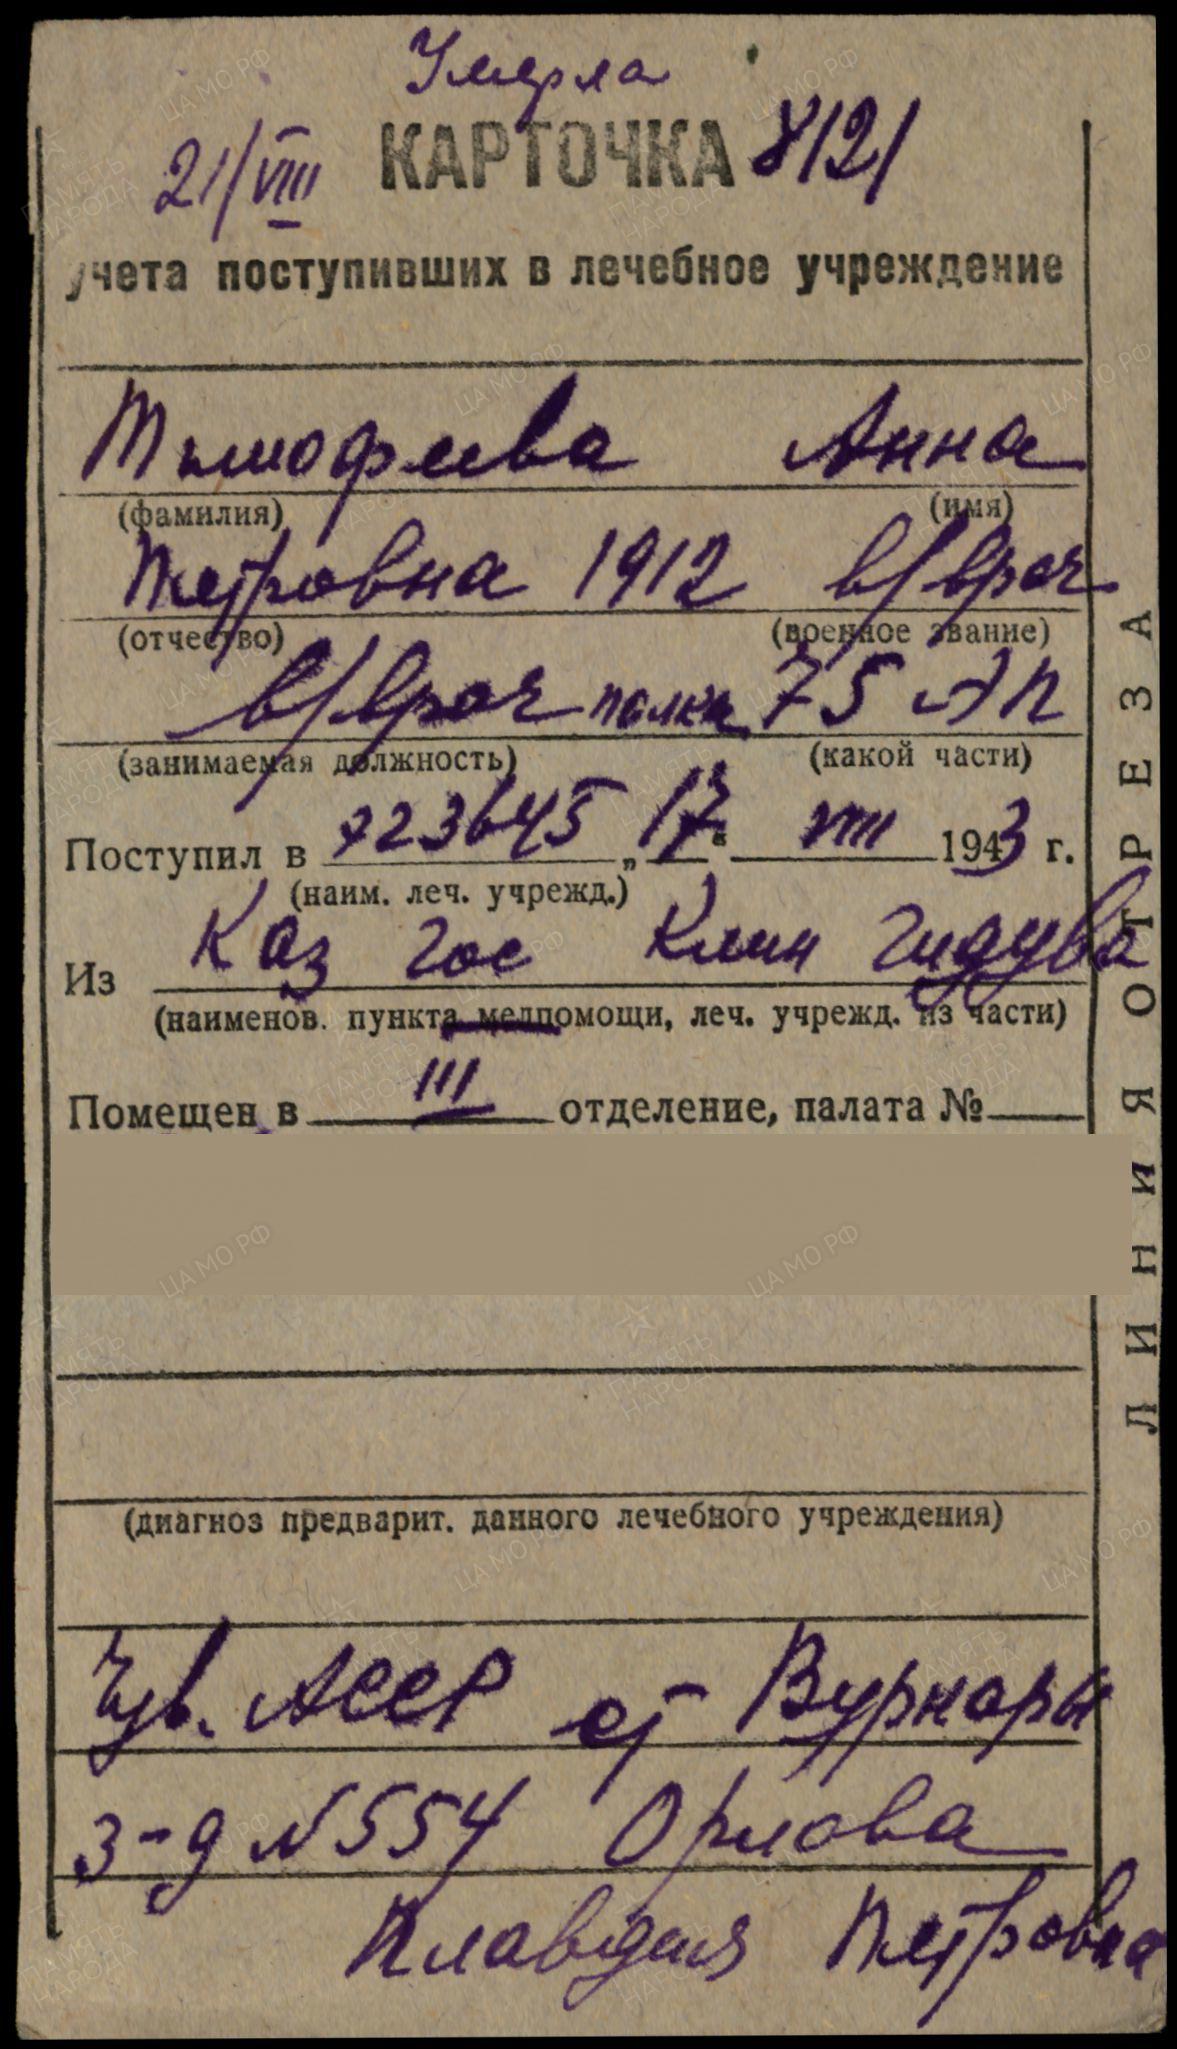 Умерла
21/VIII КАРТОЧКА 8121
учета поступивших в лечебное учреждение
Тимофеева Анна
(фамилия) (имя)
Петровна 1912 в/врач
(отчество) (военное звание)
в/врач полка 75 АП
(занимаемая должность) (какой части)
Поступил в 723645 „17“ VIII 1943 г.
(наим. леч. учрежд.)
Из Каз гос Клин гидува
(наименов. пункта медпомощи, леч. учрежд. из части)
Помещен в III отделение, палата №
(диагноз предварит. данного лечебного учреждения)
Чув. АССР ст Вурнары
з-д №554 Орлова
Клавдия Петровна
ЛИНИЯ ОТРЕЗА
ЦА МО РФ
ПАМЯТЬ НАРОДА